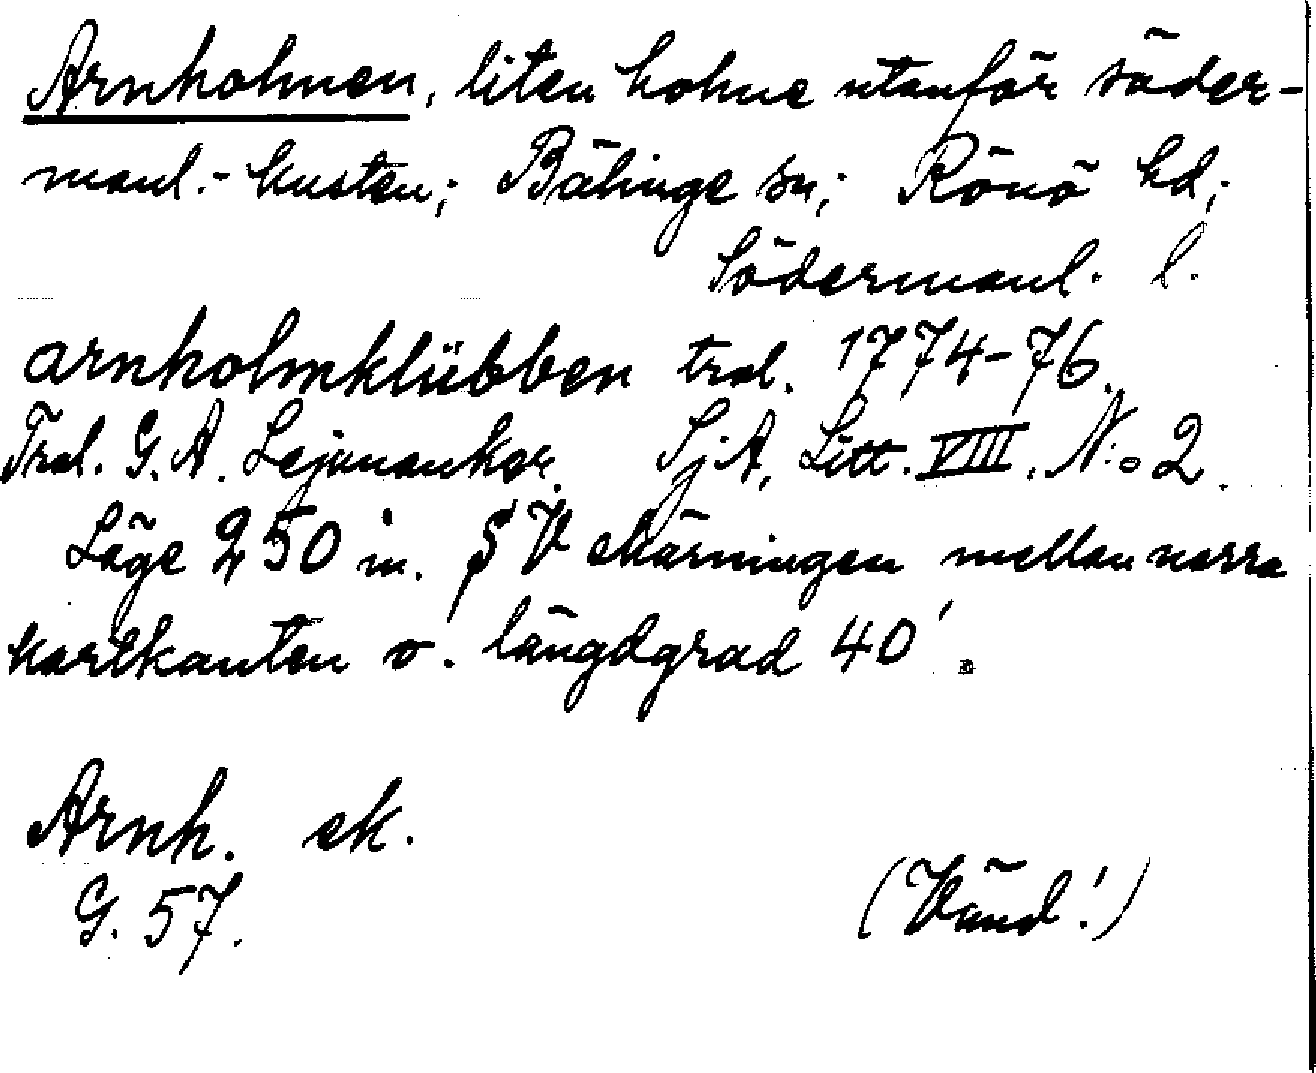 Arnholmen, liten holme utanför söder-
manl.- kusten; Bälinge sn; Rönö hd;
Södermanl. l.
arnholmklübben trol. 1774-76.
Trol. G. A. Lejonankar. SjA, Litt. VIII, N:o 2.
Läge 250 m. SV skärningen mellan norra
kartkanten o. längdgrad 40'.
Arnh. sk.
G. 57.
(Vänd!)